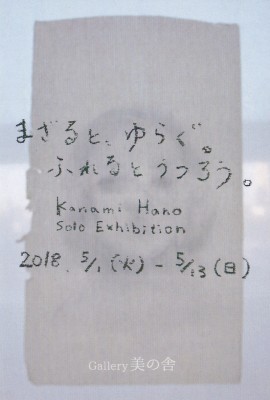 まざると、ゆらぐ。
ふれるとうつろう。
Kanami Hano
Solo Exhibition
2018. 5/1 (火) - 5/13 (日)
Gallery 美の舎